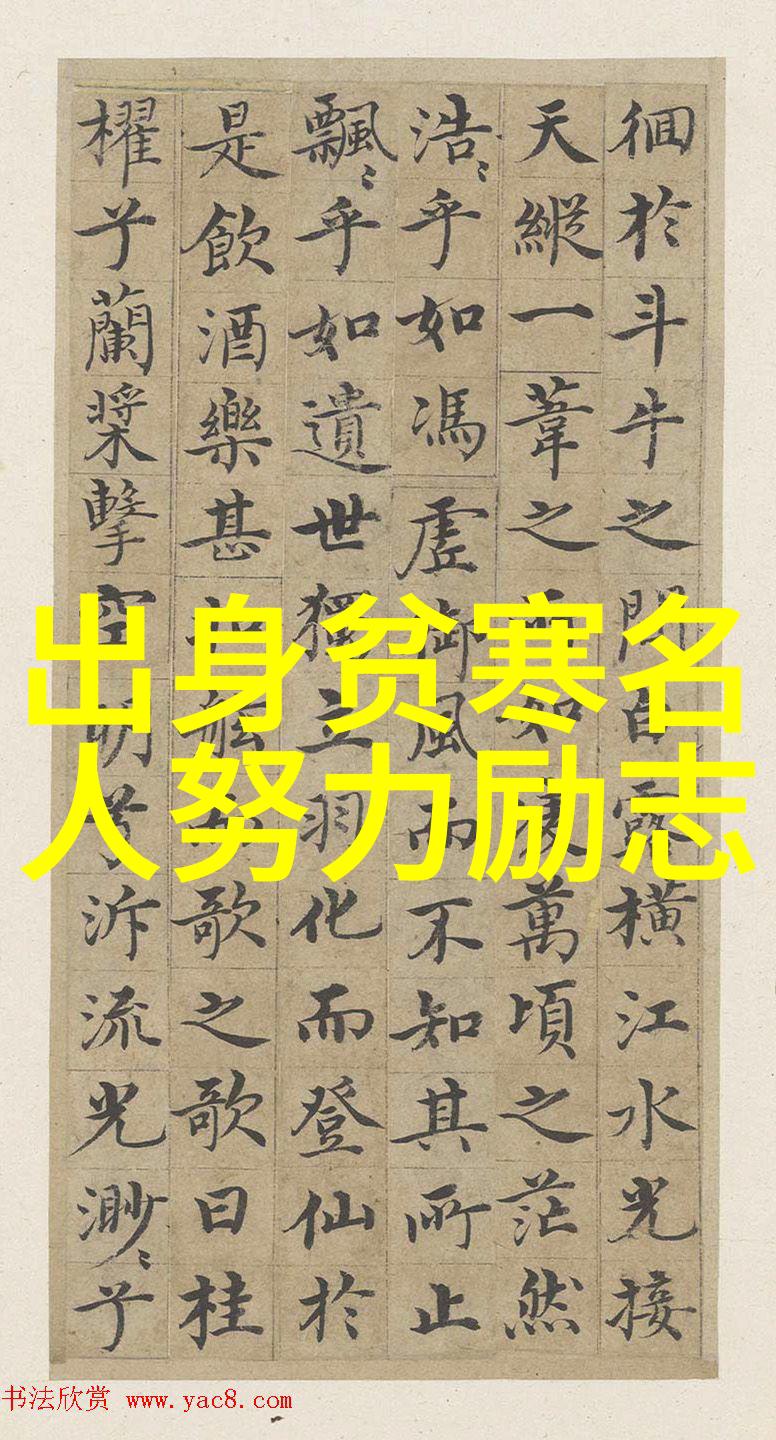 徊於斗牛之間白露橫江水光接
天縱一葦之所如凌萬頃之茫然
浩〻乎如馮虛御風而不知其所止
飄〻乎如遺世獨立羽化而登仙於
是飲酒樂甚扣舷而歌之歌曰桂
櫂兮蘭槳擊空明兮泝流光渺〻兮
出身贫寒名
人努力励志
书法欣赏 www.yac8.com